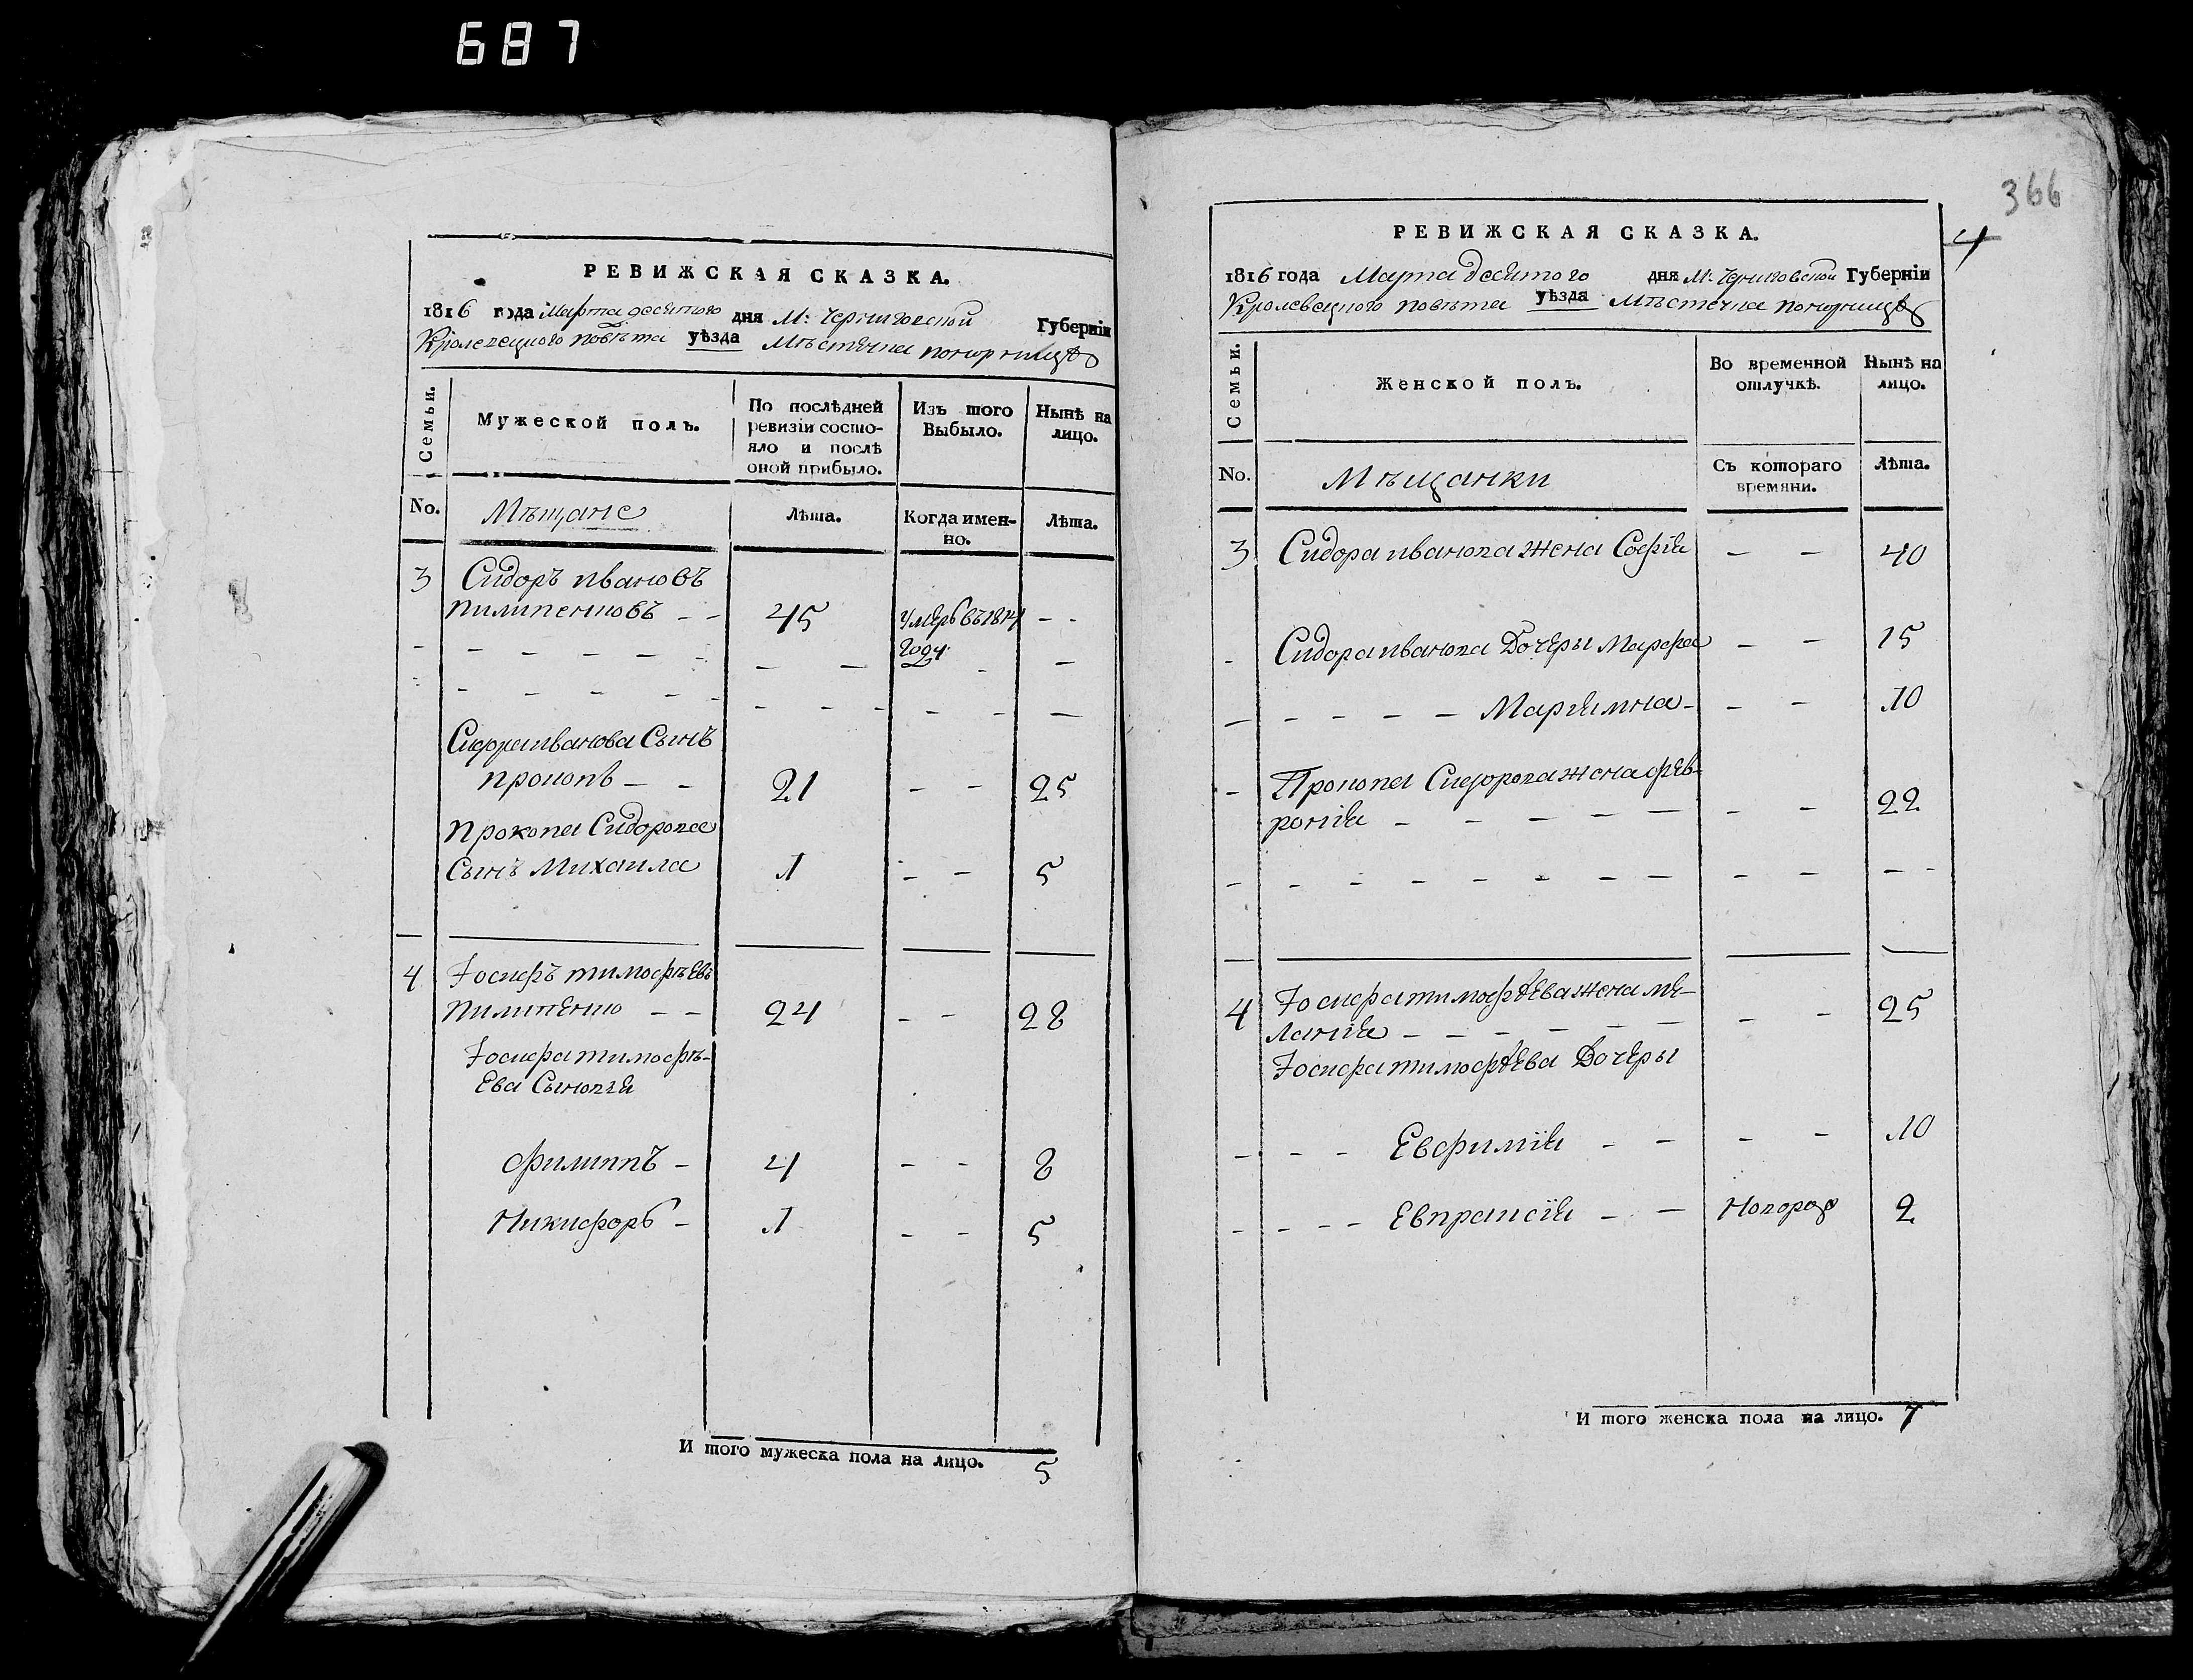 687
РЕВИЖСКАЯ СКАЗКА.
1816 года Марта десятого дня М: Черниговской Губерніи
Кролевецкого повѣта уѣзда Мѣстечка понорницѣ
Семьи.
Мужеской полъ.
По послѣдней ревизіи состо-
яло и послѣ
оной прибыло.
Изъ того
Выбыло.
Нынѣ на
лицо.
No.
Мѣщане
Лѣта.
Когда имен-
но.
Лѣта.
3 Сидоръ ивановъ
пилипенковъ - - 45 умеръ въ 1814 - -
году
Сидора иванова Сынъ
прокопъ - - 21 - - 25
прокопа Сидорова
Сынъ Михаила 1 - - 5
4 Іосифъ тимофѣевъ
пилипенко - - 24 - - 28
Іосифа тимофѣ-
ева Сыновья
филиппъ - 4 - - 8
Никифоръ - 1 - - 5
И того мужеска пола на лицо. 5
366
4
РЕВИЖСКАЯ СКАЗКА.
1816 года Марта десятого дня М: Черниговской Губерніи
Кролевецкого повѣта уѣзда Мѣстечка понорницѣ
Семьи.
Женской полъ.
Во временной
отлучкѣ.
Нынѣ на
лицо.
No.
Мѣщанки
Съ котораго
времяни.
Лѣта.
3 Сидора иванова жена Софія - - 40
- Сидора иванова Дочеры Марфа - - 15
- - - - - Маріямна - - - 10
- Прокопа Сидорова жена фев-
ронія - - - - - - - 22
4 Іосифа тимофѣева жена ме-
ланія - - - - - - - 25
Іосифа тимофѣева Дочеры
- - - Евфимія - - - - 10
- - - - Евпраксія - - Новорож 2
И того женска пола на лицо. 7